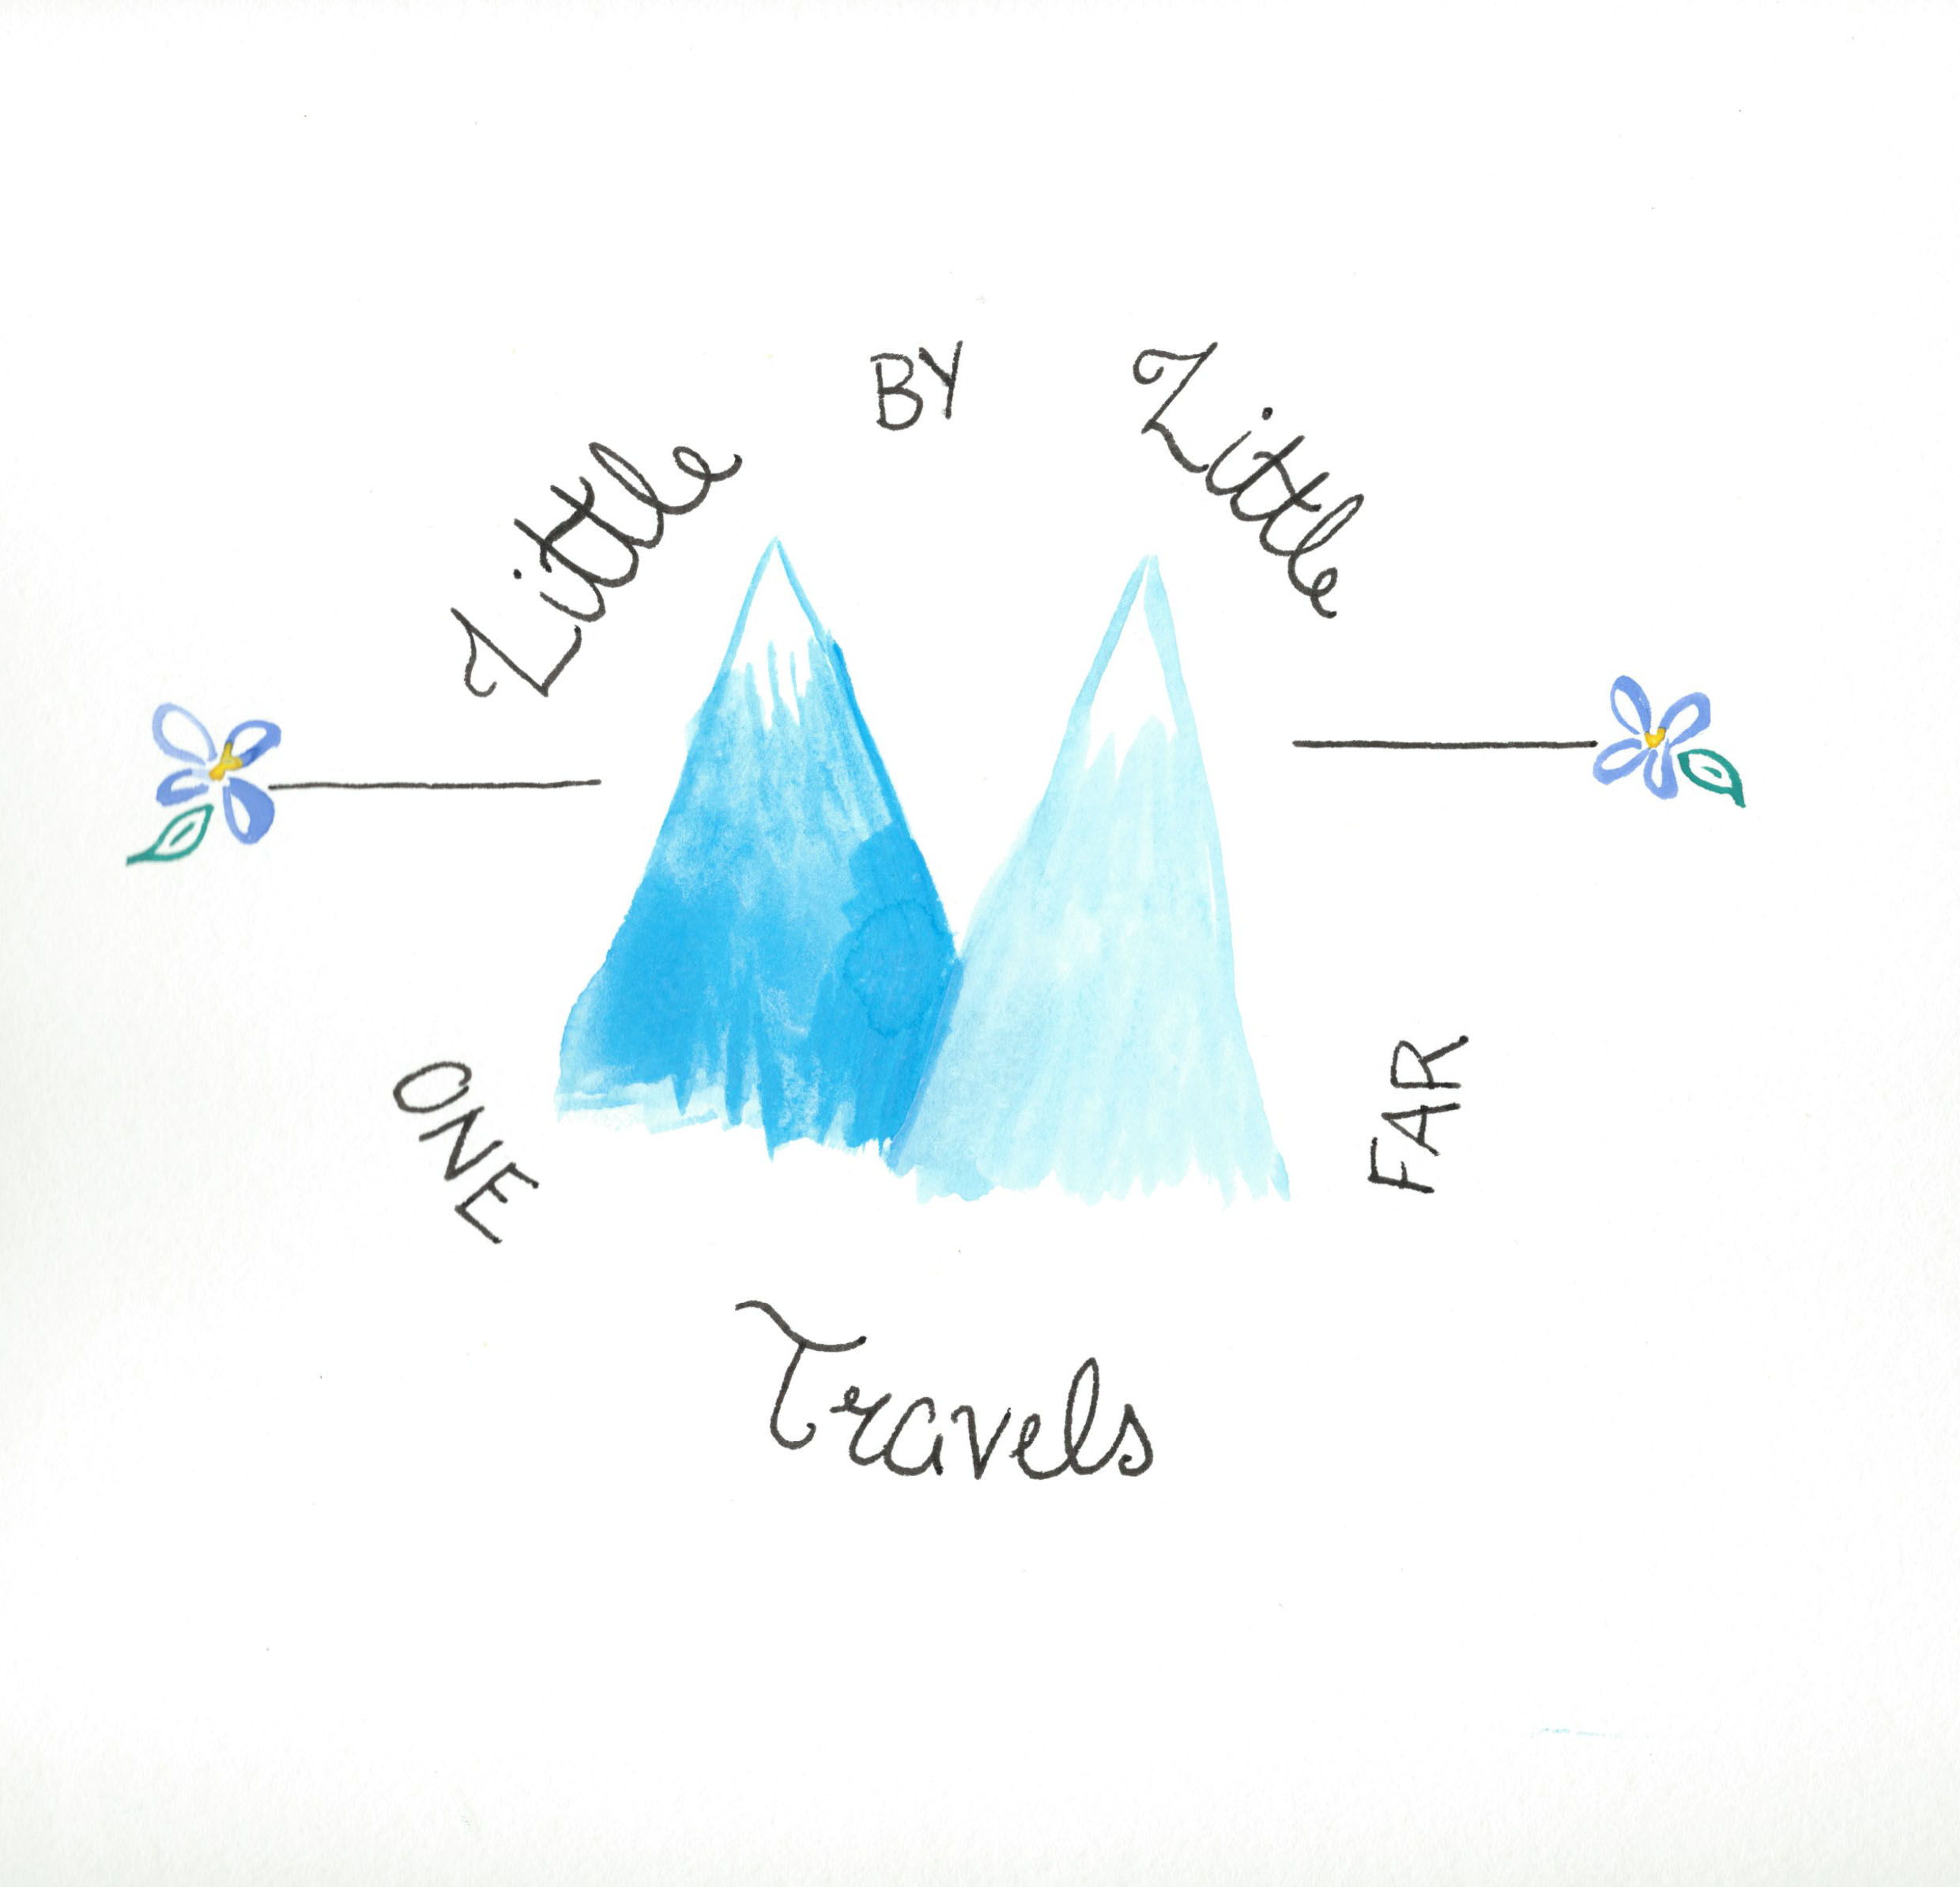 Little BY Little
ONE Travels FAR